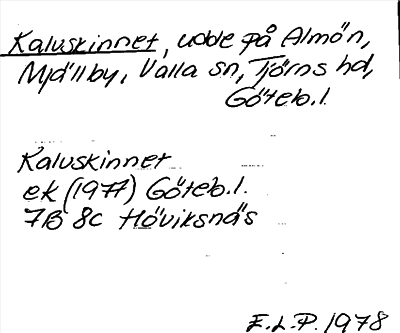 Kaluskinnet, udde på Almön,
Mjällby, Valla sn, Tjörns hd,
Göteb.l.
Kaluskinnet
ek (1977) Göteb.l.
7B 8c Höviksnäs
E.L.P. 1978